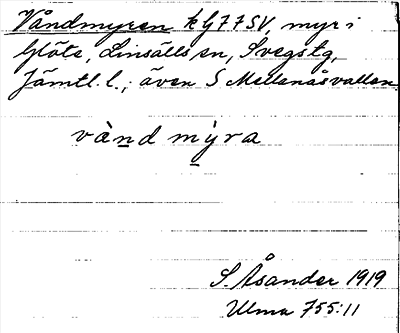 Våndmyren k G77SV, myr i
Glöte, Linsälls sn, Svegs tg,
Jämtl. l.; även S Mellanåsvallen
vànd mỳra
S. Åsander 1919
Ulma 755:11